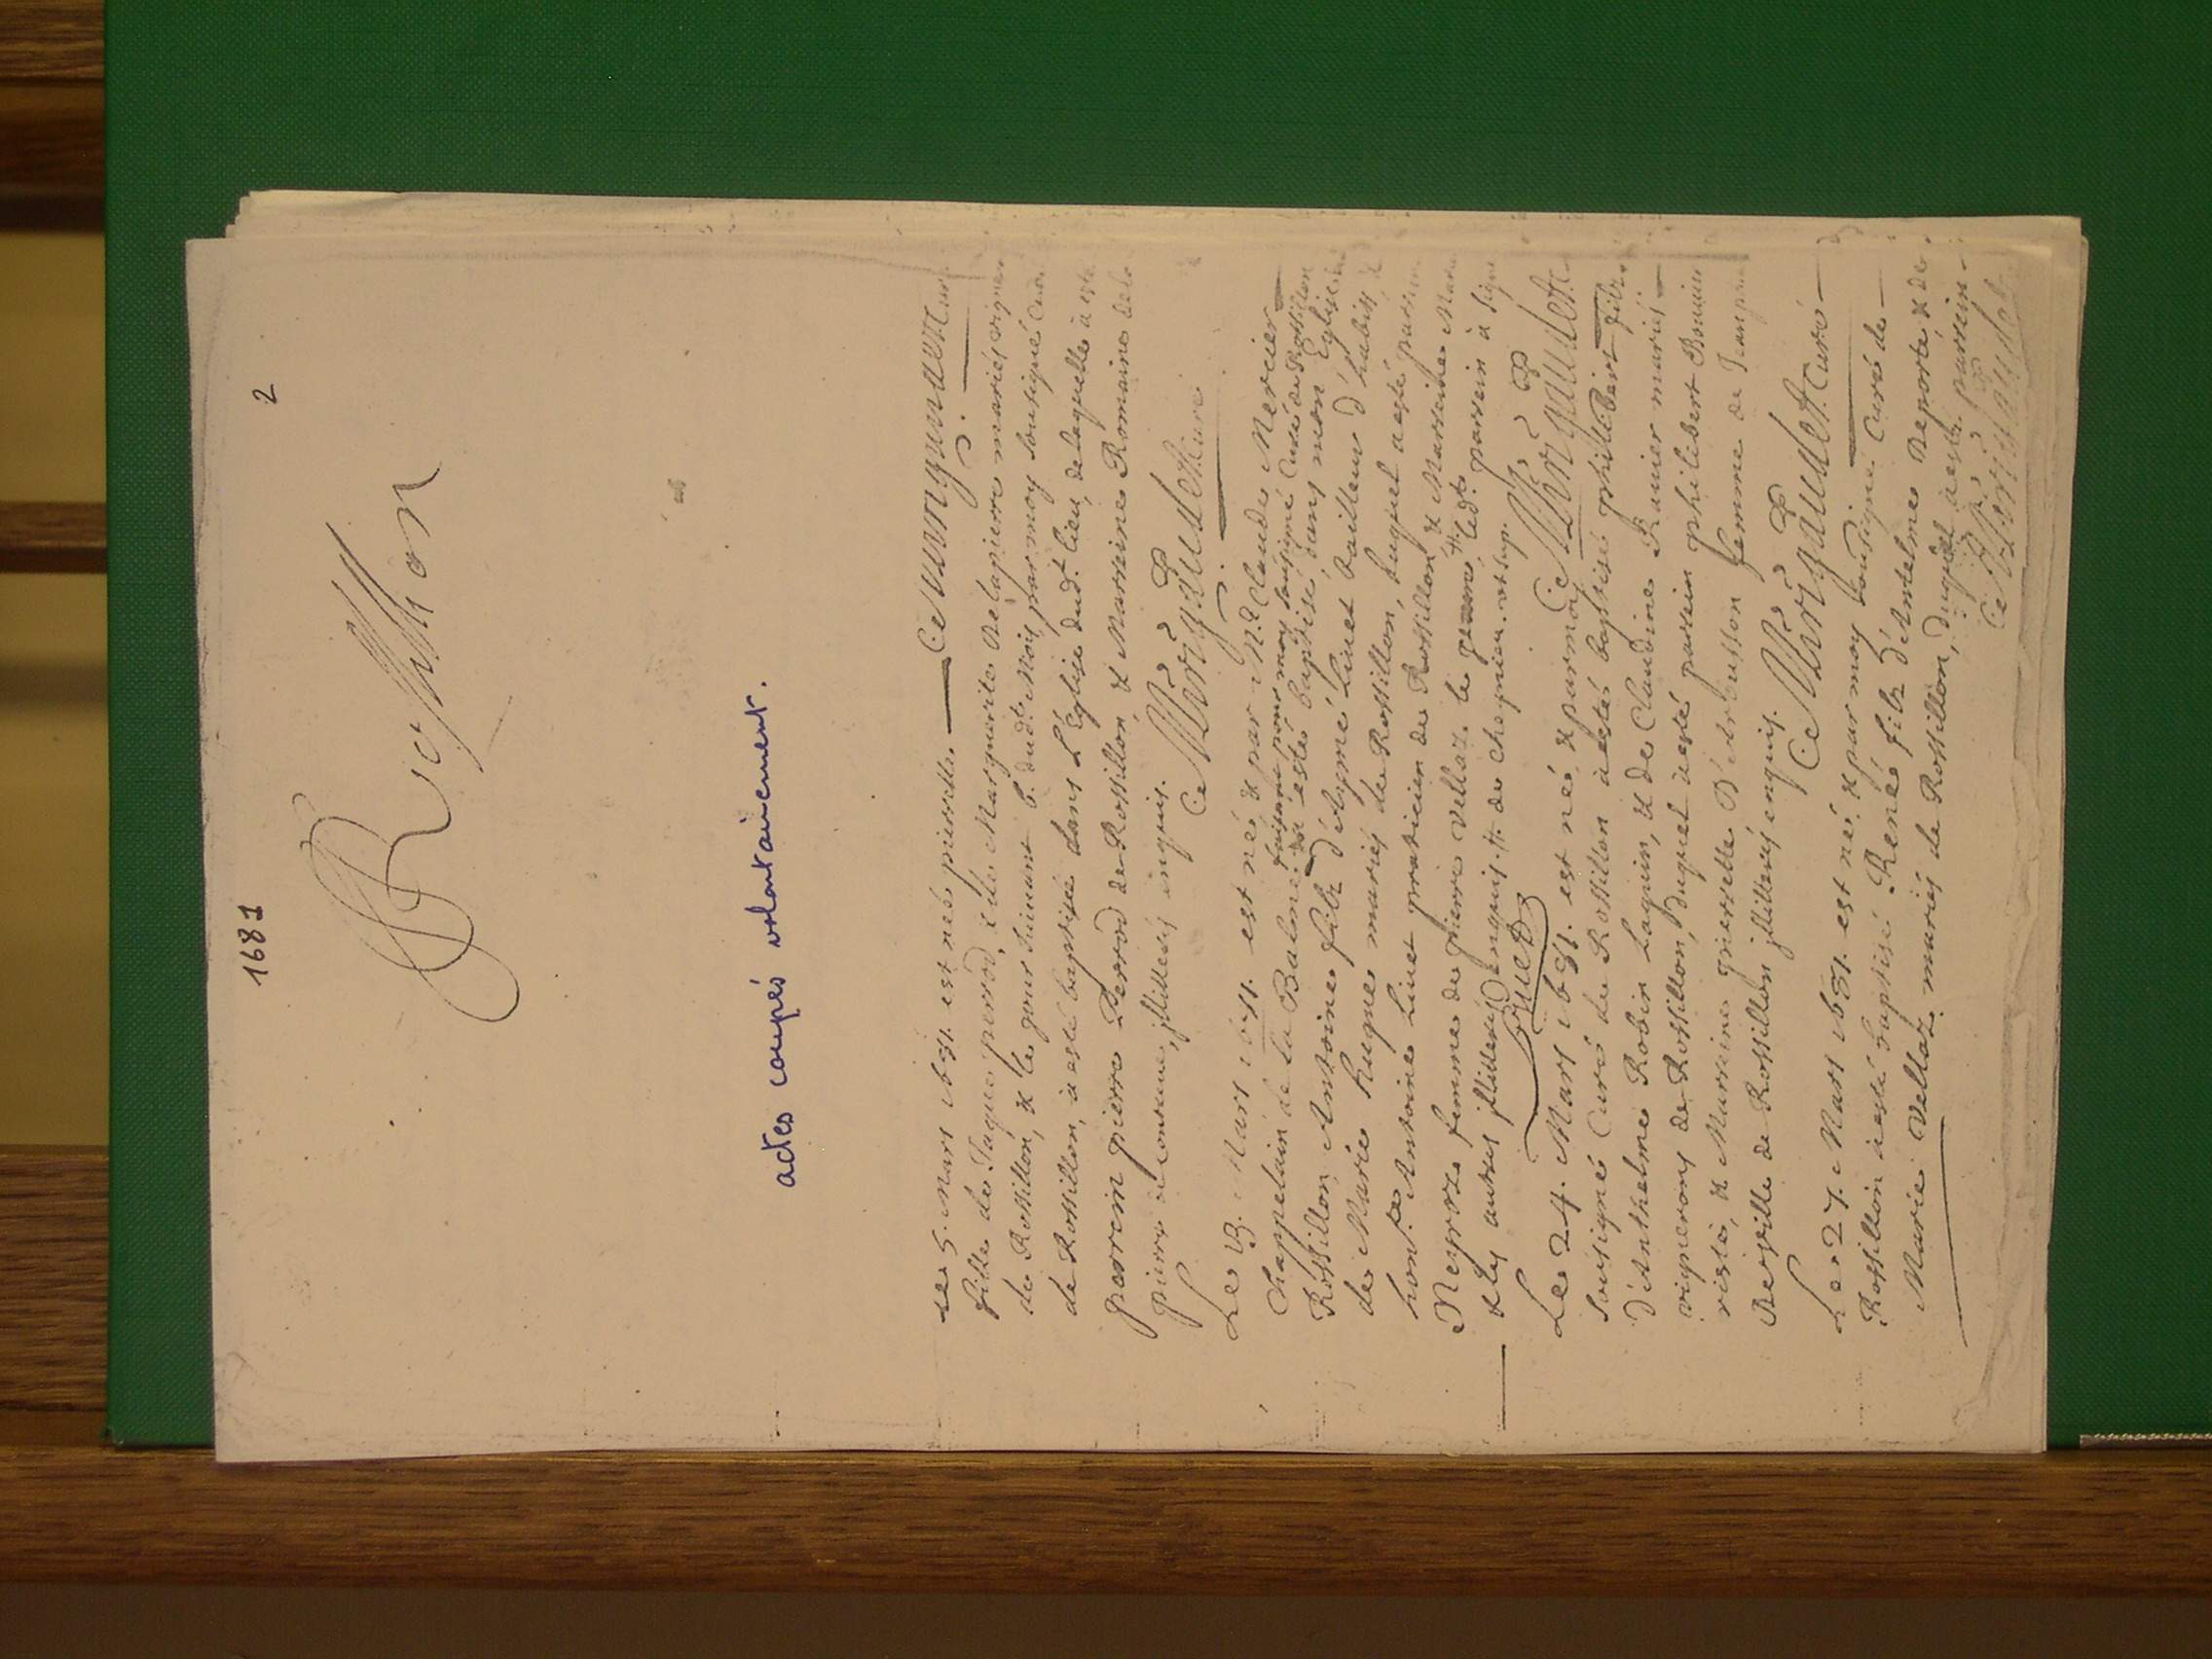 1681
2
Rossillon
actes coupés volontairement.
Ce Mérigaudett Curé
Le 5. Mars 1681. est née pierrette
fille de Jaque perrod, et de Marguerite Delapierre mariés vignerons
de Rossillon, & le jour suivant 6. dudt. Mois par moy soussigné Curé
de Rossillon, a esté baptisée dans l'Eglise dudt. lieu, de laquelle a esté
parrein pierre Perrod de Rossillon, & Marreine Romaine dela
pierre illitterés enquis.
Ce Mérigaudett Curé
Le 13. Mars 1681. est né & par M.e Claude Mercier
Chappelain de la Balme faisant pour moy soussigné Curé de Rossillon
Rossillon a esté baptisé dans mon Eglise
Antoine filz d'Aymé Linet tailleur d'habits, &
de Marie hugue mariés de Rossillon, duquel a esté parrein
hon.te Antoine Linet praticien de Rossillon & Marreine Marie
Neyroz femme de pierre Vellaz le ledt. parrein a signé
& les autres illitterés enquis. #. de
Le 24. Mars 1681. est né & par moy
Ce Mérigaudett
soussigné Curé de Rossillon a esté baptisé philibert filz
d'Anthelme Robin Laquin, & de Claudine Ravier mariés
vignerons de Rossillon, duquel a esté parrein philibert
& Marreine pierrette D'Arbusson femme de Jean
Deville de Rossillon illitterés enquis.
Ce Mérigaudett Curé
Le 27. Mars 1681. est né, & par moy soussigné Curé de
Rossillon a esté baptisé René filz d'Antelme Deporte, & de
Marie Vellaz mariés de Rossillon, duquel a esté parrein
Ce Mérigaudett